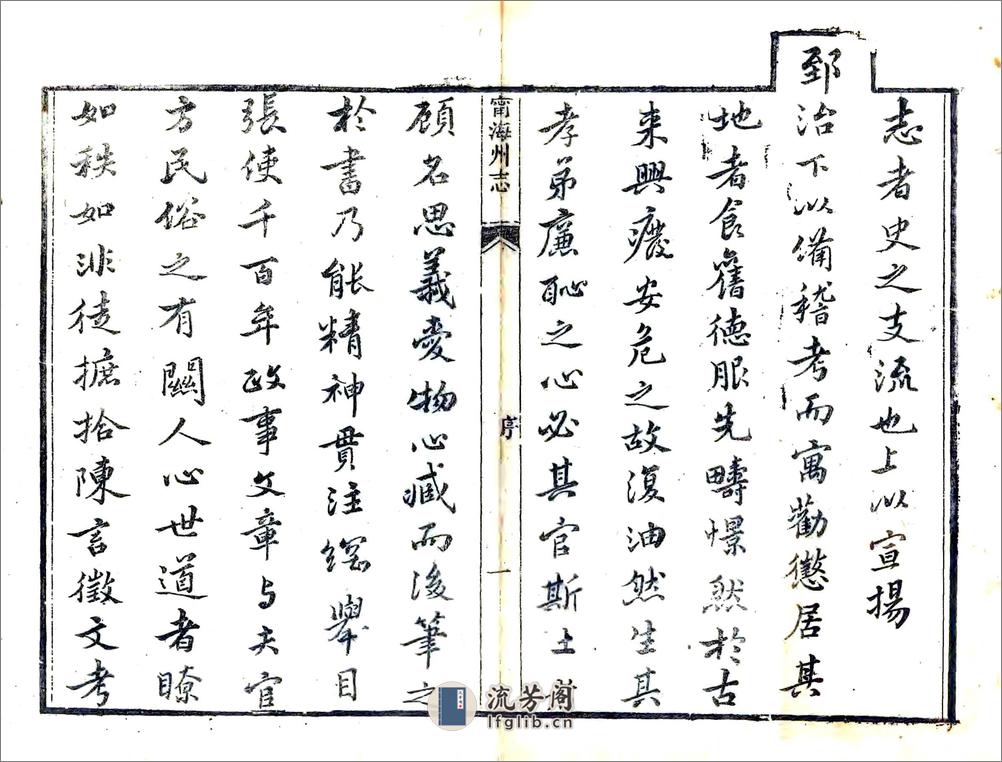 志者史之支流也上以宣揚
郅治下以備稽考而寓勸懲居其
地者食舊德服先疇憬然於古
來興廢安危之故復油然生其
孝弟廉恥之心必其官斯土
甯海州志
序
一
顧名思義愛物心臧而後筆之
於書乃能精神貫注綱舉目
張使千百年政事文章與夫官
方民俗之有關人心世道者瞭
如秩如非徒摭拾陳言徵文考
流芳閣
lfglib.cn